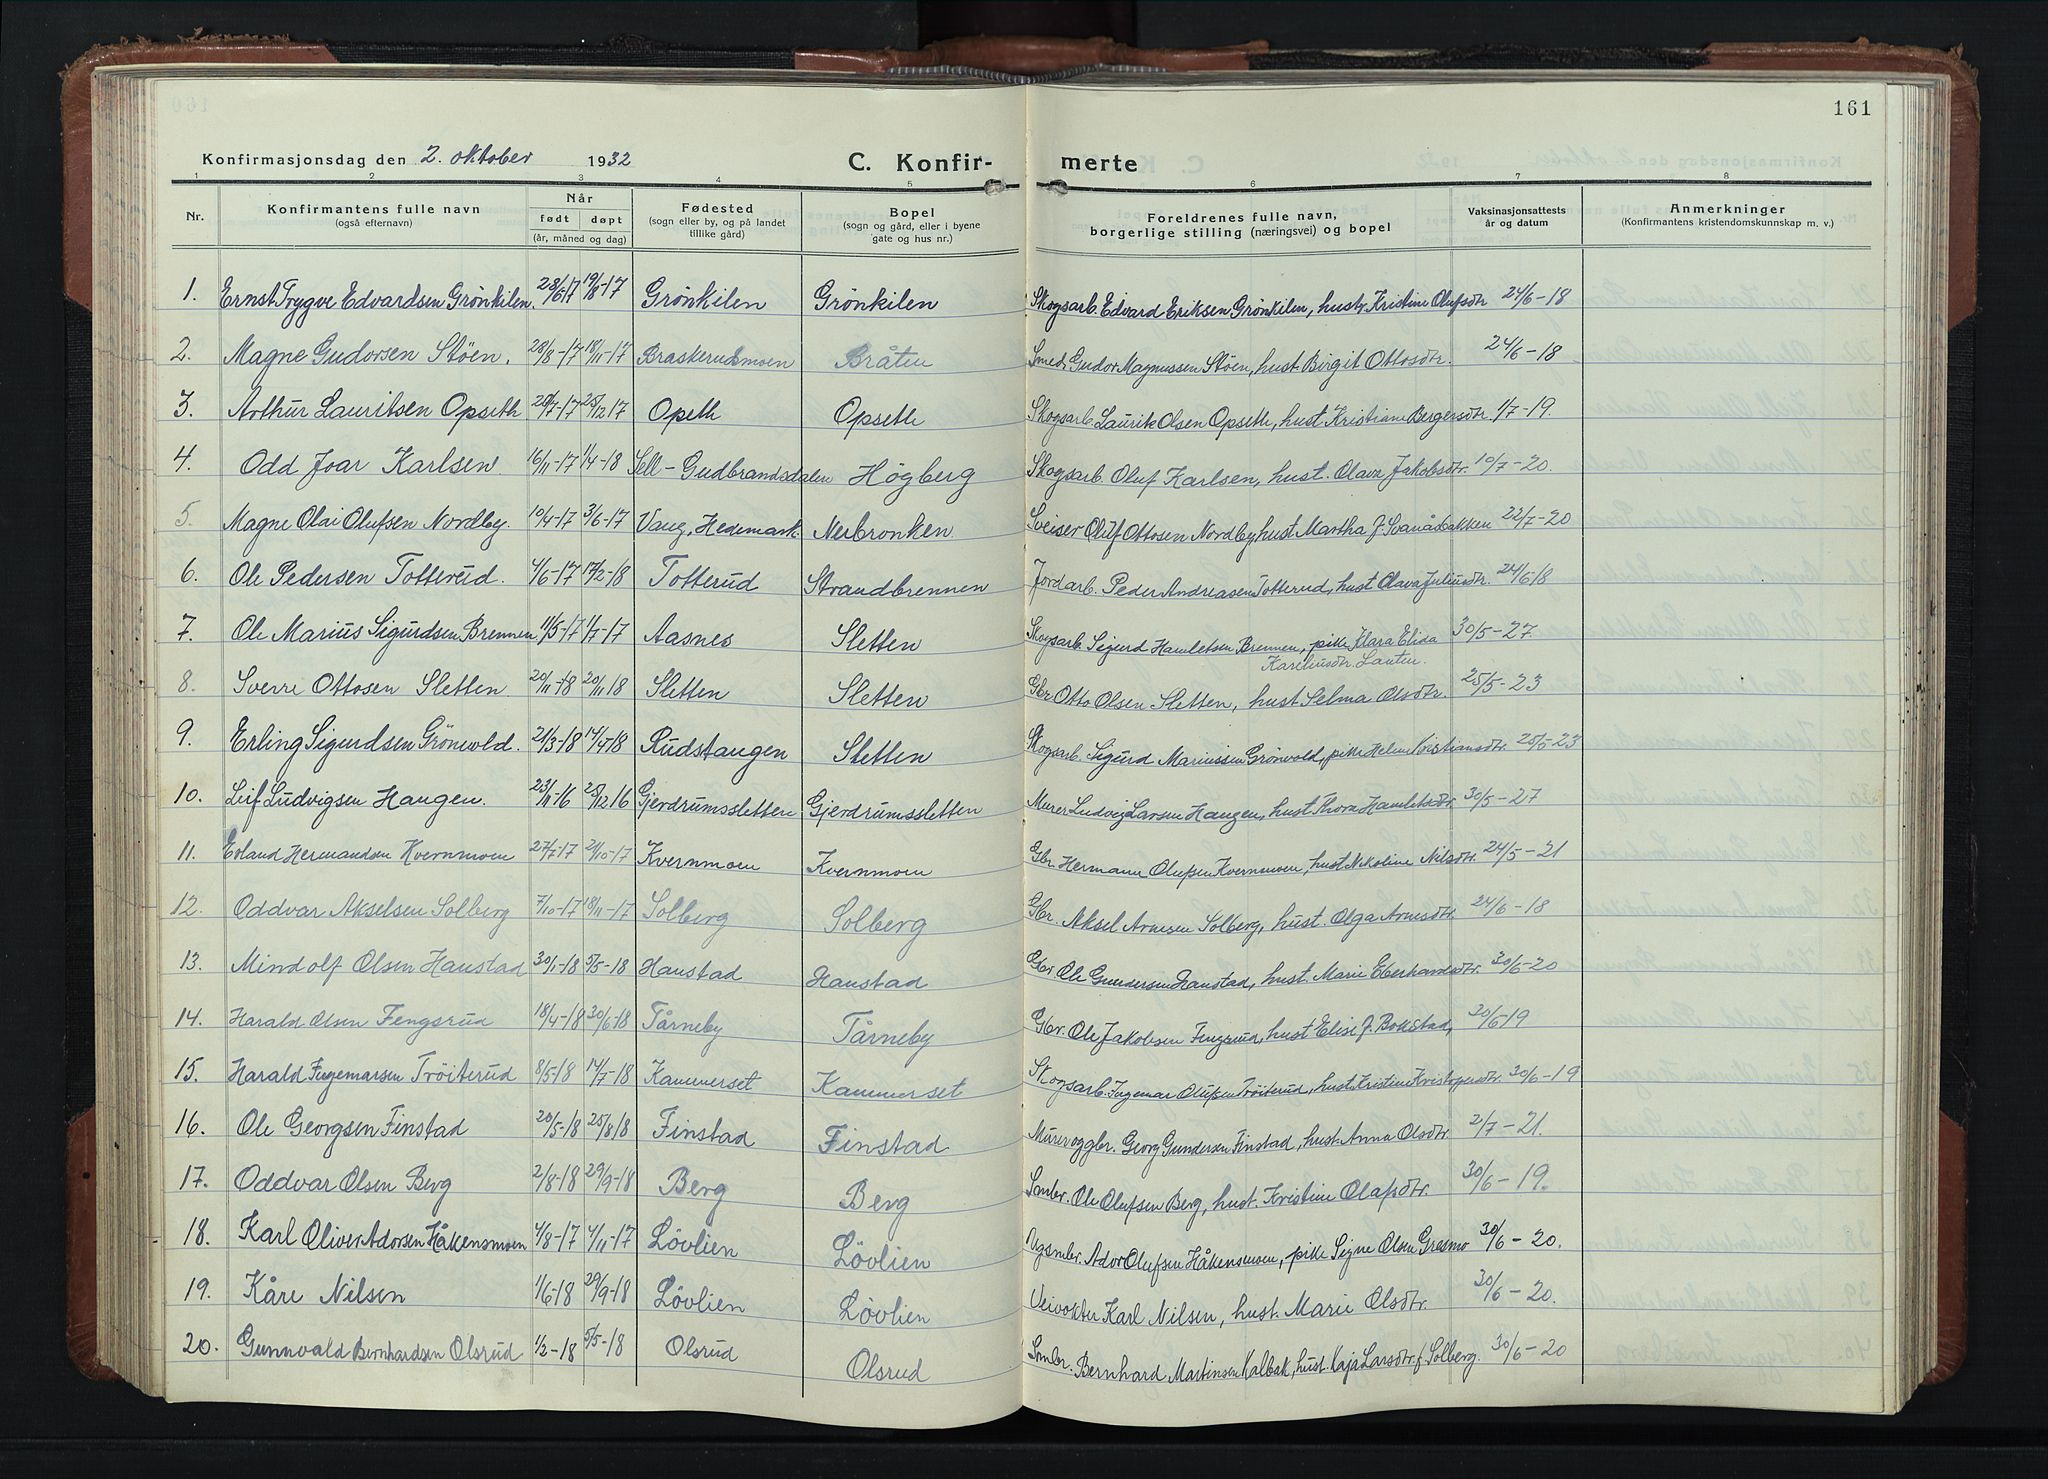 161
Konfirmasjonsdag den 2. oktober 1932 C. Konfir- merte
1 2 3 4 5 6 7 8
Nr. Konfirmantens fulle navn (også efternavn) Når født døpt (år, måned og dag) Fødested (sogn eller by, og på landet tillike gård) Bopel (sogn og gård, eller i byene gate og hus nr.) Foreldrenes fulle navn, borgerlige stilling (næringsvei) og bopel Vaksinasjonsattests år og datum Anmerkninger (Konfirmantens kristendomskunnskap m. v.)
1. Ernst Trygve Edvardsen Grönkilen. 28/6 17 19/8-17 Grönkilen Grönkilen Skogsarb. Edvard Eriksen Grönkilen, hustr. Kristine Olufsdtr 24/6-18
2. Magne Gudorsen Stöen. 28/8-17 18/11-17 Braskerudsmoen Bråten Smed, Gudor Magnussen Stöen, hust. Birgit Ottosdtr. 24/6-18
3. Arthur Lauritsen Opseth 28/7-17 25/12 17 Opseth Opseth Skogsarb. Laurits Olsen Opseth, hust Kristiane Bergersdtr 1/7-19.
4. Odd Joar Karlsen 16/11-17 1/4-18 Sell-Gudbrandsdalen Högberg Skogsarb. Oluf Karlsen, hust. Olava Jakobsdtr. 10/7-20.
5. Magne Olai Olufsen Nordby. 10/4-17 3/6-17 Vang, Hedemark. Nerbronken Sveiser Oluf Ottosen Nordby, hust Martha f. Svanåbakken 22/7-20
6. Ole Pedersen Totterud. 4/6-17 17/2-18 Totterud Strandbrennen Jordarb. Peder Andreasen Totterud, hust Olava Juliusdtr. 24/6-18
7. Ole Marius Sigurdsen Brennen 11/5-17 1/7-17 Aasnes Sletten Skogsarb. Sigurd Hamletsen Brennen, pike Klara Elida 30/5-27.
Kareliusdtr. Lauten.
8. Sverre Ottosen Sletten 20/11-18 20/11 18 Sletten Sletten Gbr Otto Olsen Sletten, hust Selma Olsdtr. 25/5-23
9. Erling Sigurdsen Grönvold. 21/3-18 14/4-18 Rudstaugen Sletten Skogsarb. Sigurd Mariussen Grönvold, pike Helene Kristiansdtr. 25/5-23
10. Leif Ludvigsen Haugen. 23/11-16 25/12 16 Gjerdrumssletten Gjerdrumssletten Murer Ludvig Larsen Haugen, hust Thora Hamletsdtr. 30/5-27
11. Erland Hermandsen Kvernmoen 27/7-17 21/10-17 Kvernmoen Kvernmoen Gbr. Hermann Olufsen Kvernmoen, hust Nikoline Nilsdtr. 24/5-21
12. Oddvar Akselsen Solberg 7/10-17 18/11-17 Solberg Solberg Gbr. Aksel Arnesen Solberg, hust. Olga Arnesdtr. 24/6-18
13. Mindolf Olsen Haustad 30/1-18 5/5-18 Haustad Haustad Gbr Ole Gundersen Haustad, hust. Marie Eberhardsdtr. 30/6-20
14. Harald Olsen Fengsrud 18/4-18 30/6-18 Tårneby Tårneby Gbr. Ole Jakobsen Fengsrud, hust Elise f. Bokstad, 30/6-19
15. Harald Ingemarsen Tröiterud 8/5-18 14/7-18 Kammerset Kammerset Skogsarb. Ingemar Olufsen Tröiterud, hust. Kristine Kristoffersdtr. 30/6-19
16. Ole Georgsen Finstad 20/5-18 25/8 18 Finstad Finstad Murer og gbr. Georg Gundersen Finstad, hust. Anna Olsdtr. 2/7-21.
17. Oddvar Olsen Berg 2/8-18 29/9-18 Berg Berg Smbr. Ole Olufsen Berg, hust. Kristine Olafsdtr. 30/6-19.
18. Karl Oliver Adorsen Håkensmoen 4/8-17 4/11-17 Lövlien Lövlien Ugsmbr. Ador Olufsen Håkensmoen, pike Signe Olsen Gresmo 30/6-20.
19. Kåre Nilsen 1/6-18 29/9-18 Lövlien Lövlien Veivokter Karl Nilsen, hust. Marie Olsdtr. 30/6-20.
20. Gunnvald Bernhardsen Olsrud 1/2-18 5/5-18 Olsrud Olsrud Smbr. Bernhard Martinsen Kalbak, hust. Kaja Larsdtr. f. Solberg. 30/6-20